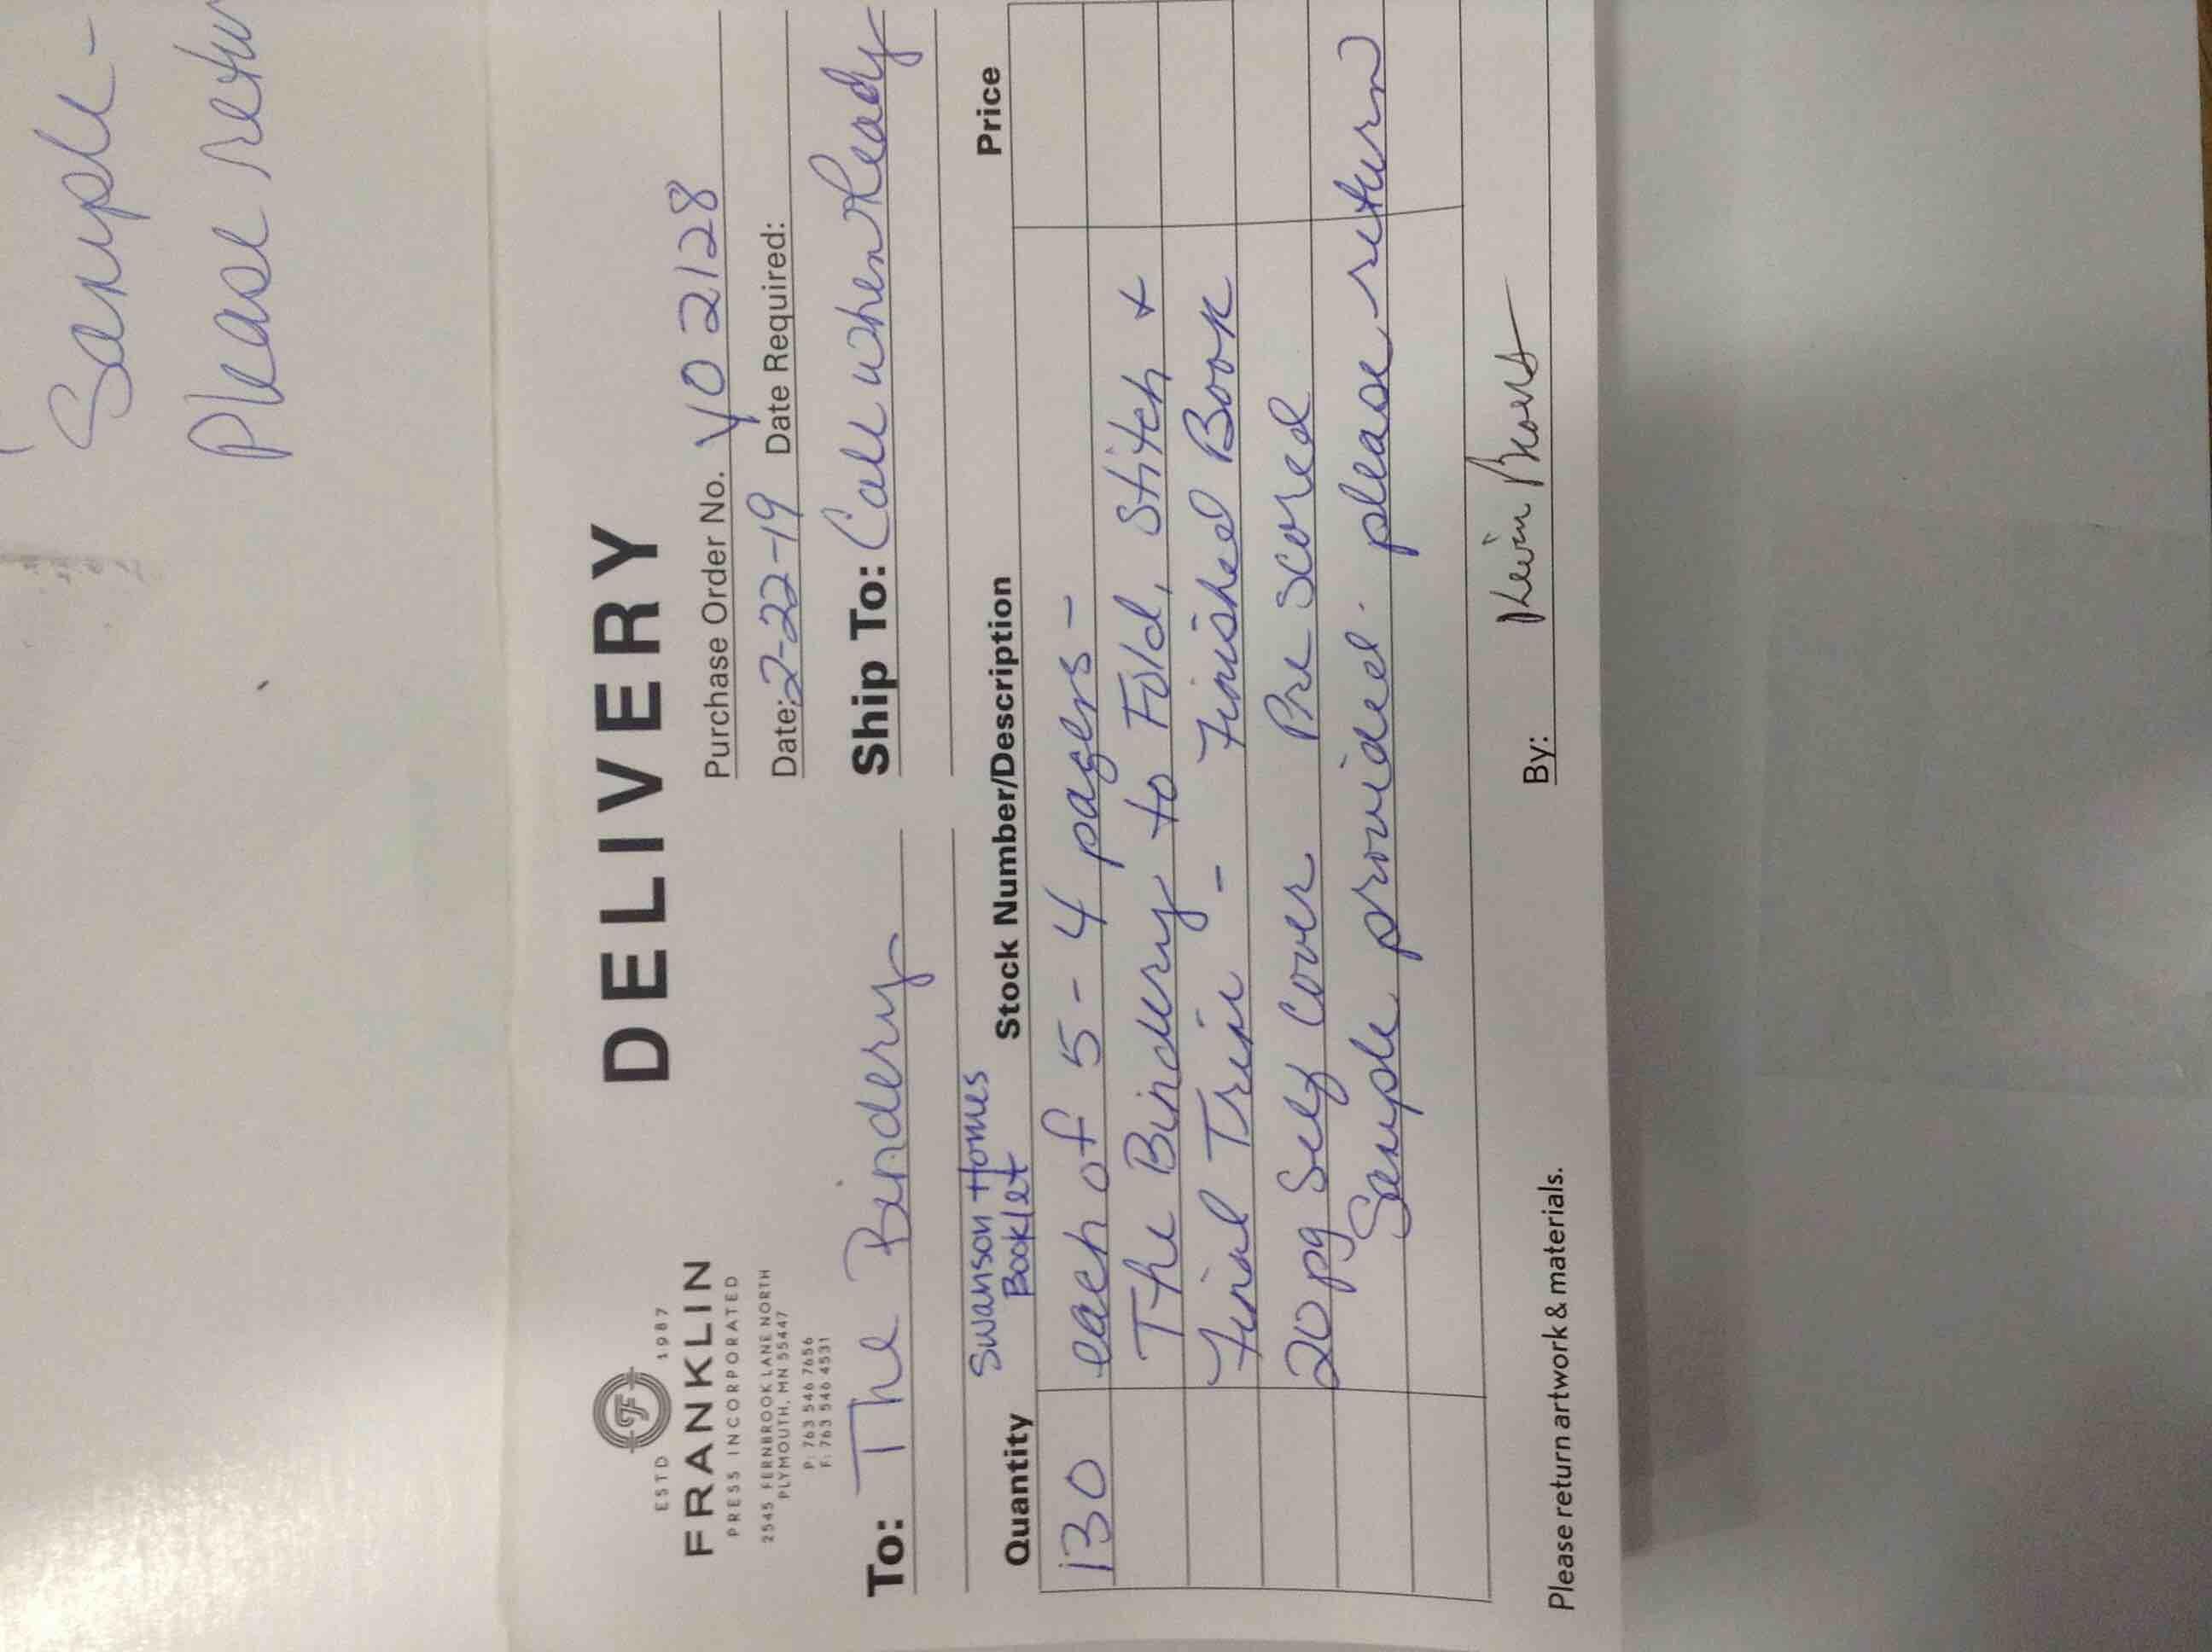 Sample -
Please retur
DELIVERY
ESTD 1987
FRANKLIN
PRESS INCORPORATED
2545 FERNBROOK LANE NORTH
PLYMOUTH, MN 55447
P: 763 546 7656
F: 763 546 4531
Purchase Order No. YO 2128
Date: 2-22-19 Date Required:
To: The Bindery Ship To: Call when Ready
Swanson Homes
Booklet
Quantity Stock Number/Description Price
130 each of 5-4 pagers -
The Bindery to Fold, Stitch +
Final Trim - Finished Book
20 pg Self Cover Pre scored
Sample provided. please return
By: Kevin
Please return artwork & materials.